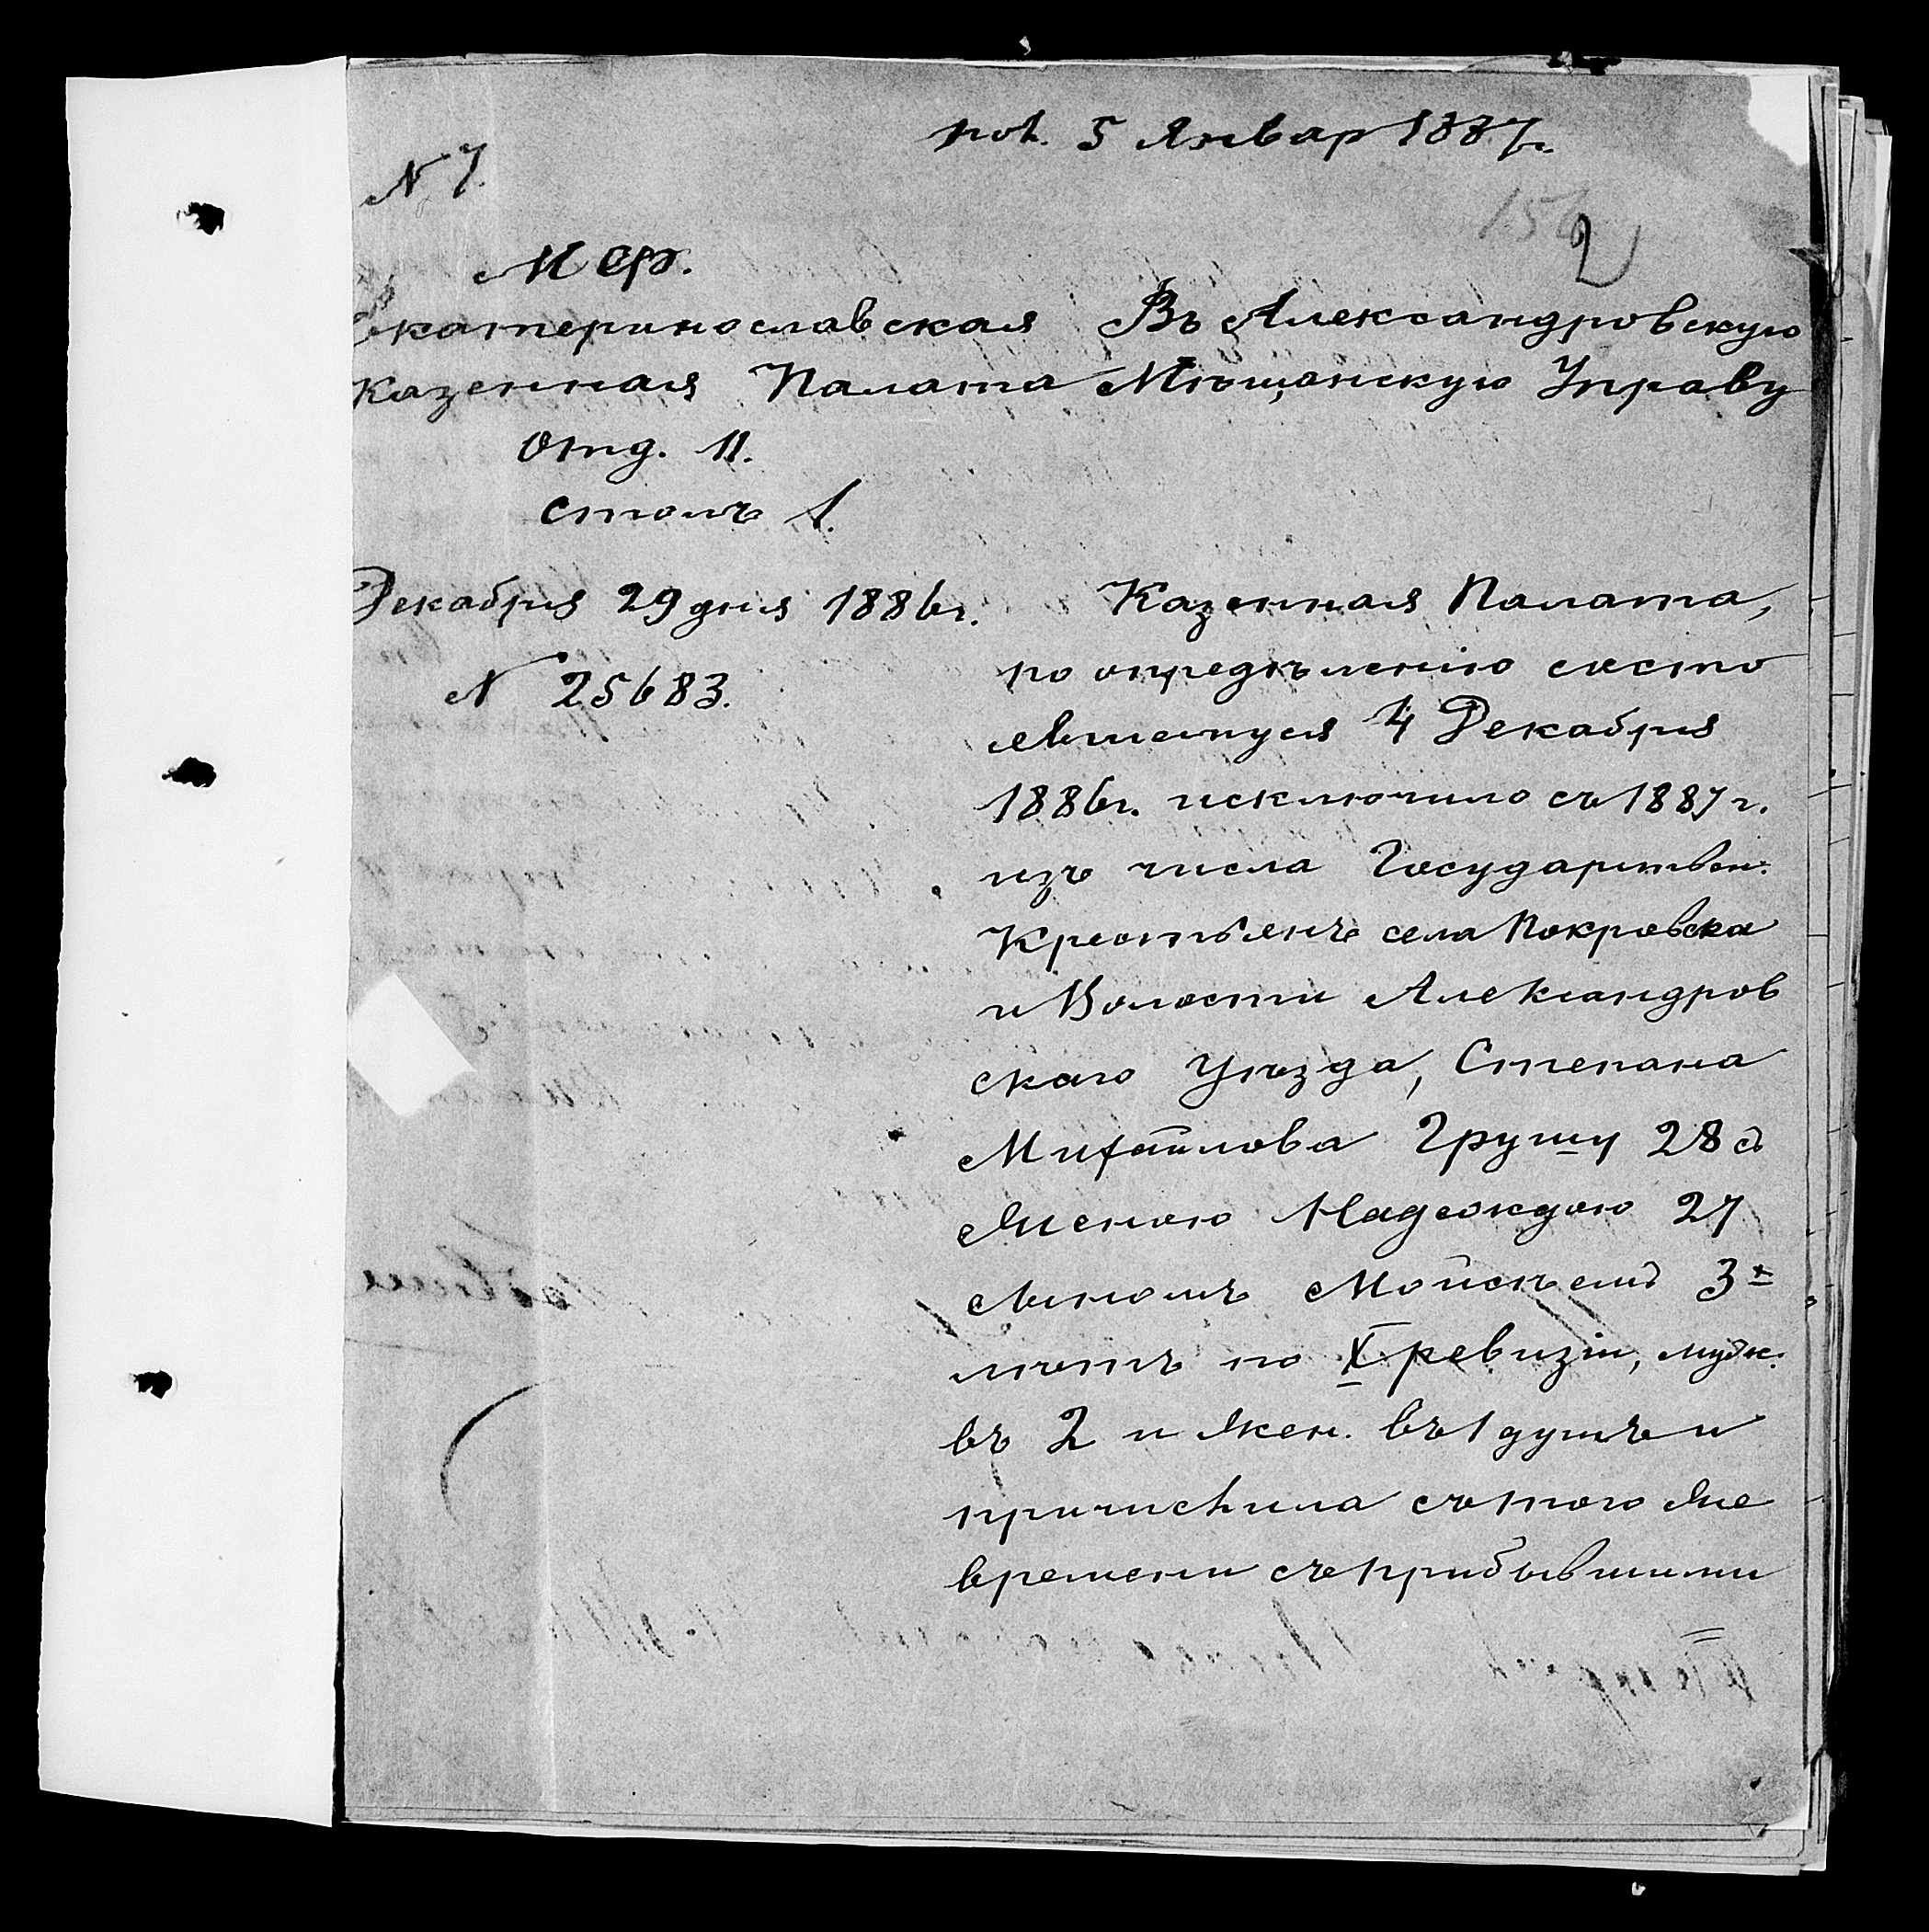 пол. 5 Январ 1887г.
N 7.
2
М Ф.
Екатеринославская
Казенная Палата
Отд. II.
столъ 1.
Декабря 29 дня 1886г.
N 25683.
Въ Александровскую
Мѣщанскую Управу
Казенная Палата,
по опредѣленію состо
явшемуся 4 Декабря
1886г. исключило съ 1887г.
изъ числа Государствен.
Крестьянъ села Покровска
и Волости Александров
скаго Уѣзда, Степана
Михайлова Грушу 28 съ
Женою Надеждою 27
сыномъ Мойсѣемъ 3х
лѣтъ по X ревизіи, муж.
въ 2 и жен. въ 1 душѣ и
причислила съ того же
времени съ прибывшими